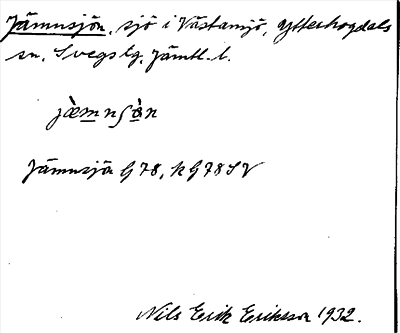 Jämnsjön, sjö i Västansjö, Ytterhogdals
sn, Svegs tg, Jämtl. l.
jæ̀mnʃò̱n
Jämnsjön G 78, k G 78 SV
Nils Erik Eriksson 1932.